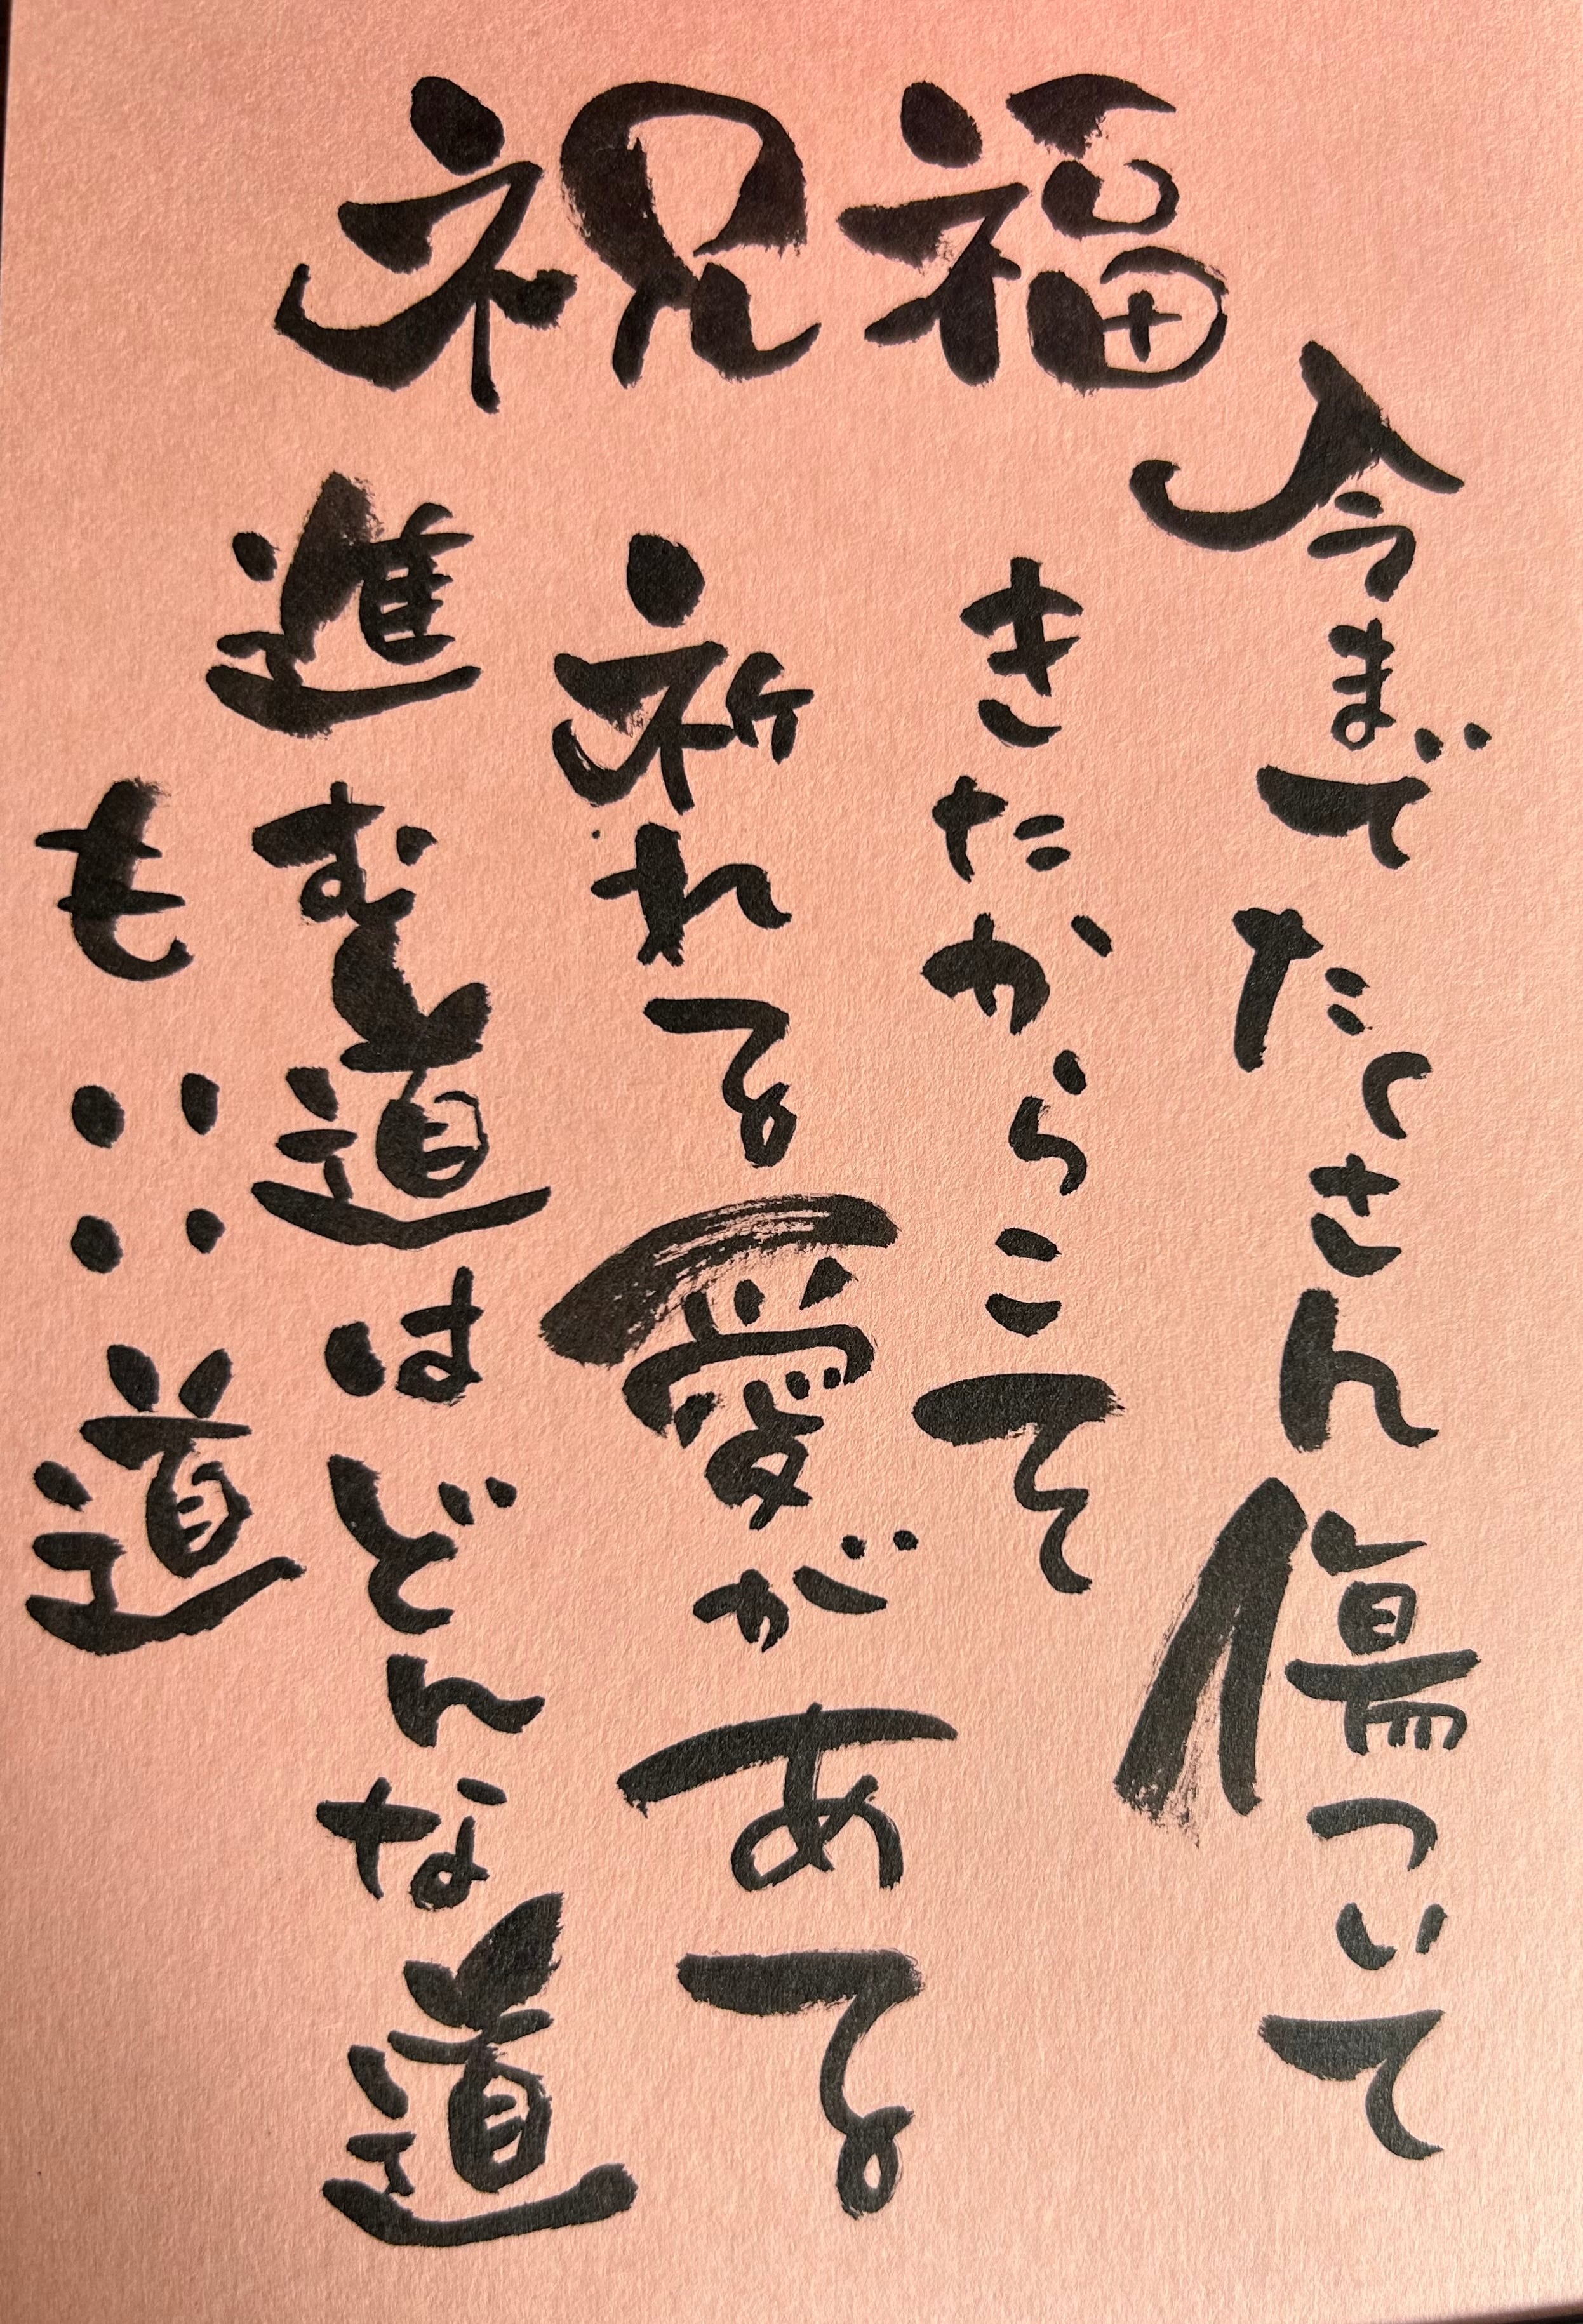 祝福
今までたくさん傷ついて
きたからこそ
祈れる愛がある
進む道はどんな道
も∷道